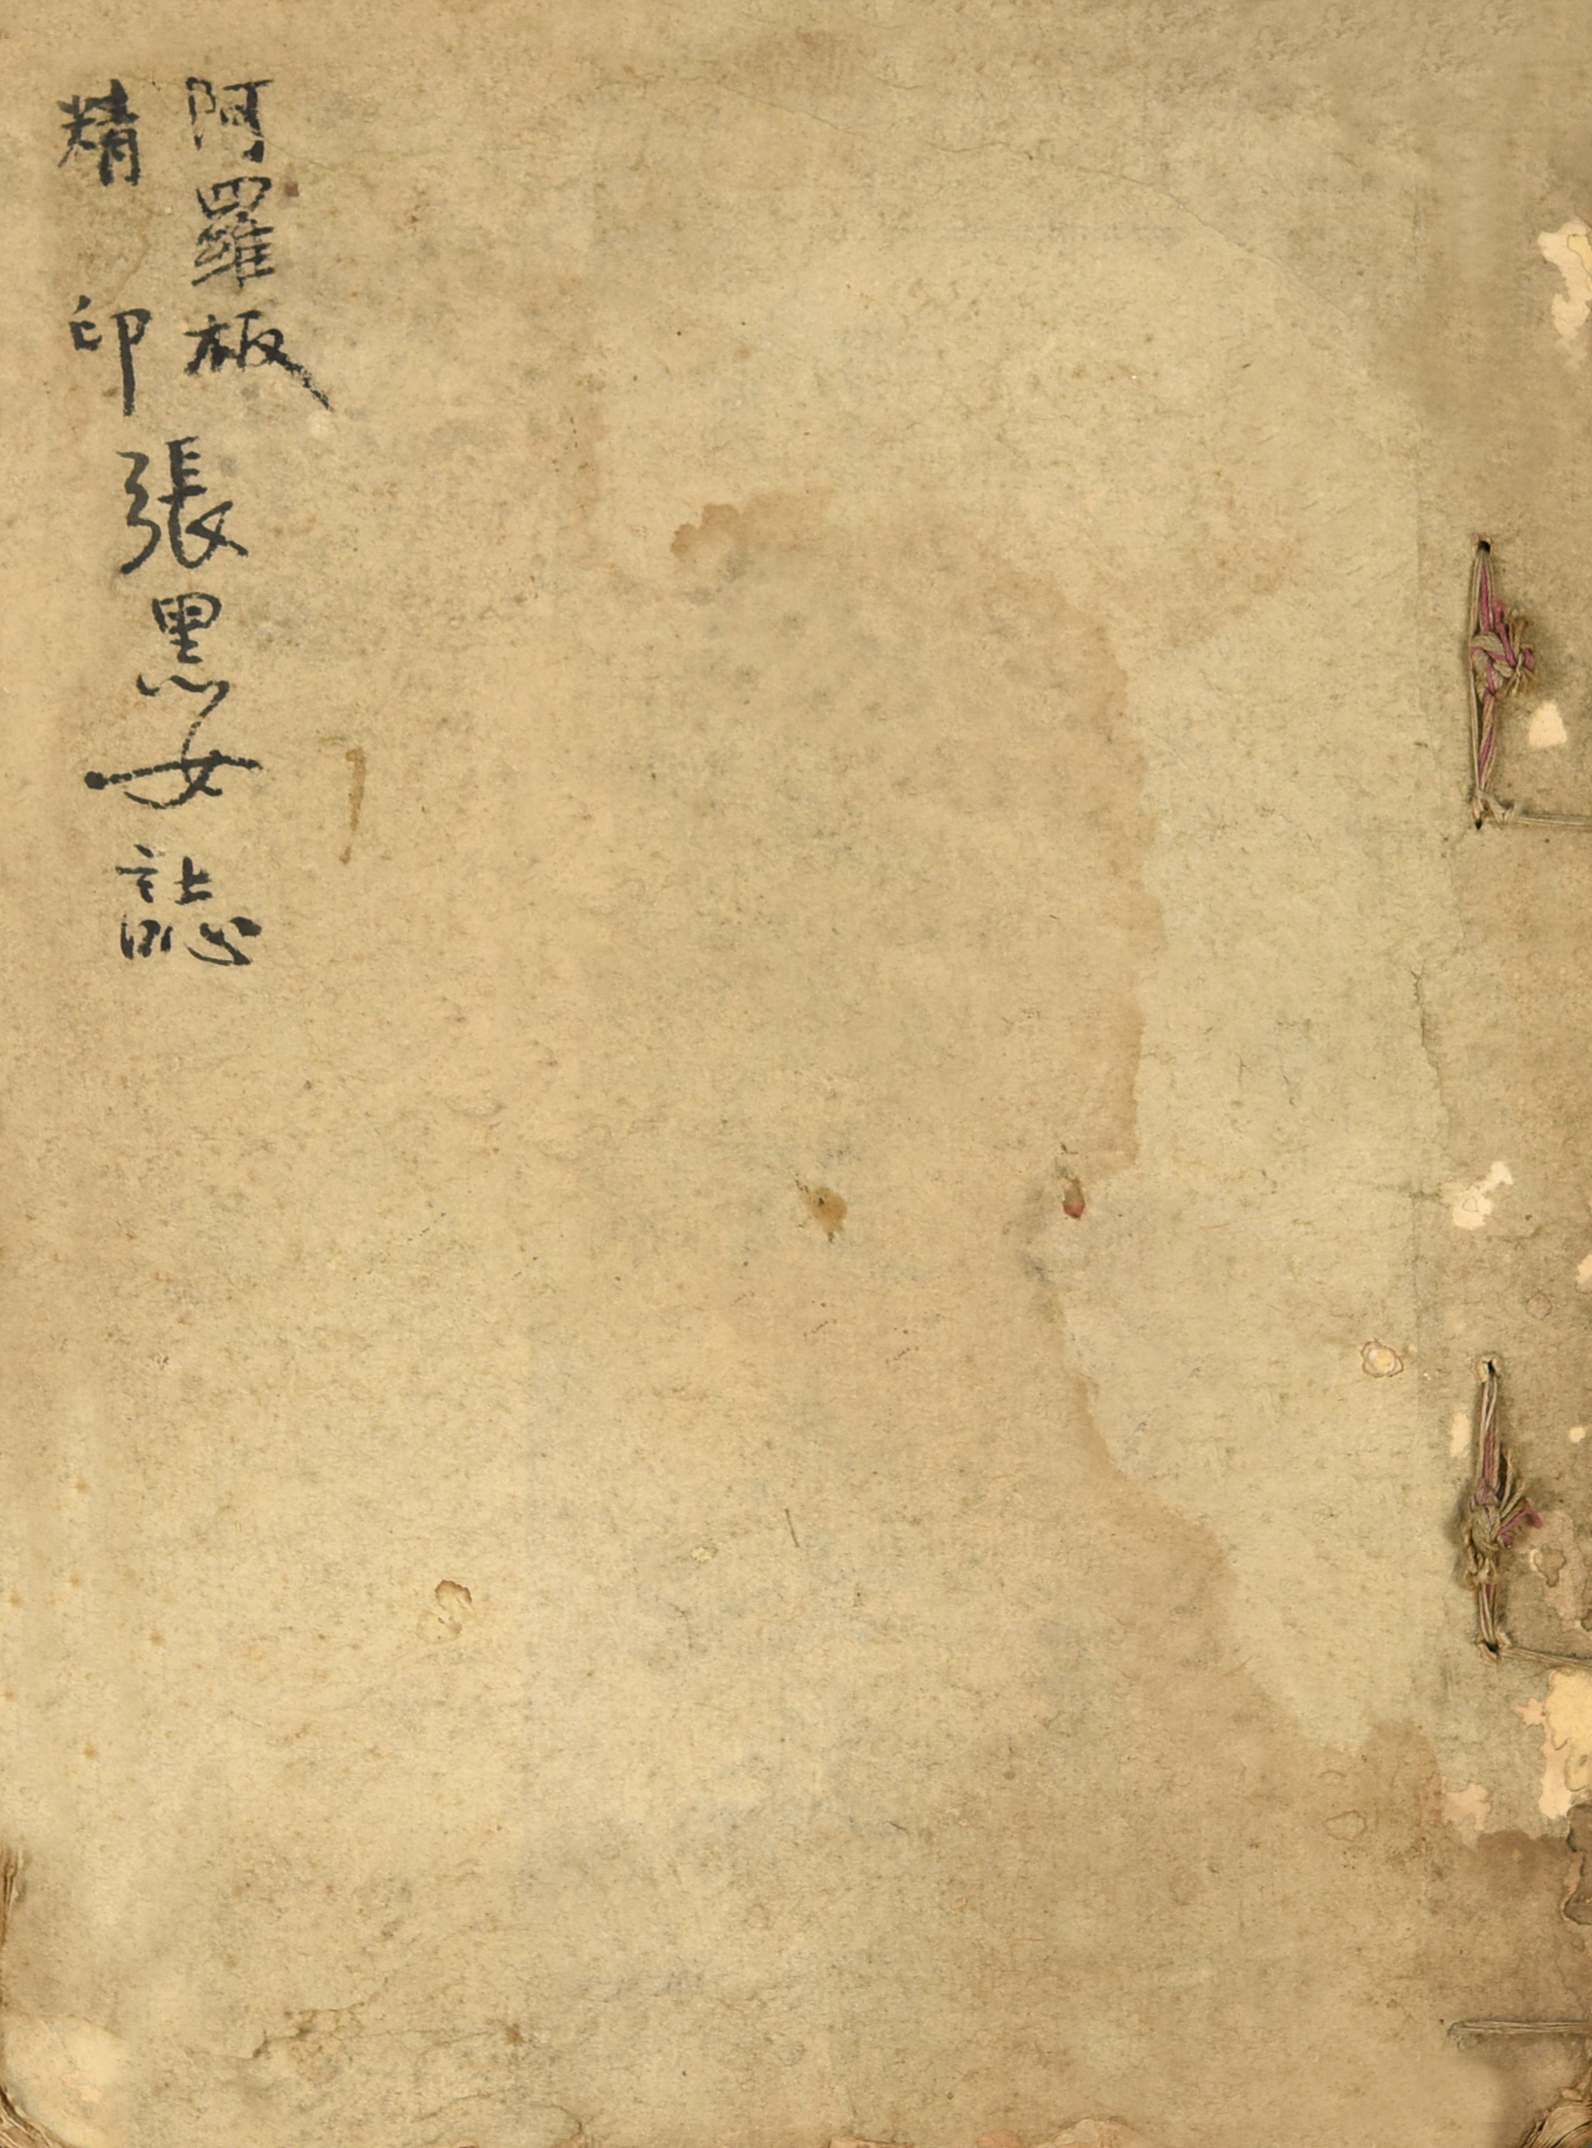 阿羅板
精印
張黑女誌